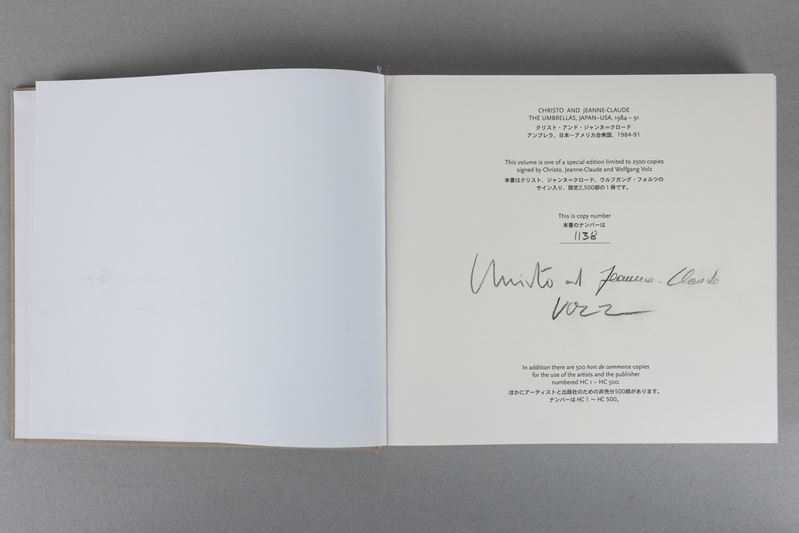 CHRISTO AND JEANNE-CLAUDE
THE UMBRELLAS, JAPAN–USA, 1984 – 91
クリスト・アンド・ジャンヌ=クロード
アンブレラ、日本—アメリカ合衆国、1984-91
This volume is one of a special edition limited to 2500 copies
signed by Christo, Jeanne-Claude and Wolfgang Volz
本書はクリスト、ジャンヌ=クロード、ウルフガング・フォルツの
サイン入り、限定2,500部の1冊です。
This is copy number
本書のナンバーは
1138
Christo and Jeanne-Claude
VOLZ
In addition there are 500 hors de commerce copies
for the use of the artists and the publisher
numbered HC 1 – HC 500.
ほかにアーティストと出版社のための非売分500部があります。
ナンバーは HC 1 〜 HC 500。